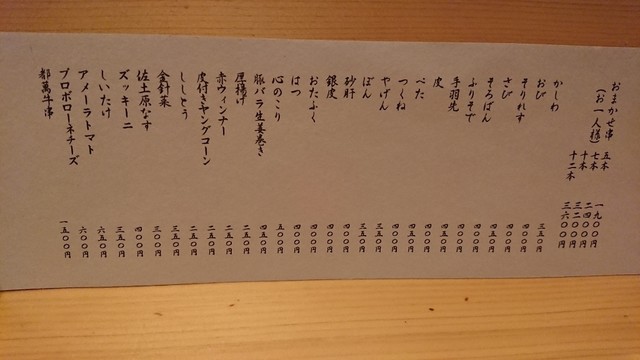 おまかせ串
(お一人様)
五本 一九〇〇円
七本 二四〇〇円
十本 三二〇〇円
十二本 三六〇〇円
かしわ 三五〇円
おび 四〇〇円
そりれす 四〇〇円
さび 四五〇円
そろばん 四〇〇円
ふりそで 四〇〇円
手羽先 四五〇円
皮 四〇〇円
ぺた 四五〇円
つくね 四〇〇円
やげん 三五〇円
ぼん 三五〇円
砂肝 四〇〇円
銀皮 四〇〇円
おたふく 四〇〇円
はつ 四〇〇円
心のこり 五〇〇円
豚バラ生姜巻き 四五〇円
厚揚げ 二五〇円
赤ウィンナー 二五〇円
皮付きヤングコーン 二五〇円
ししとう 二五〇円
金針菜 三〇〇円
佐土原なす 三〇〇円
ズッキーニ 四〇〇円
しいたけ 三五〇円
アメーラトマト 六五〇円
プロボローネチーズ 六〇〇円
都萬牛串 一五〇〇円